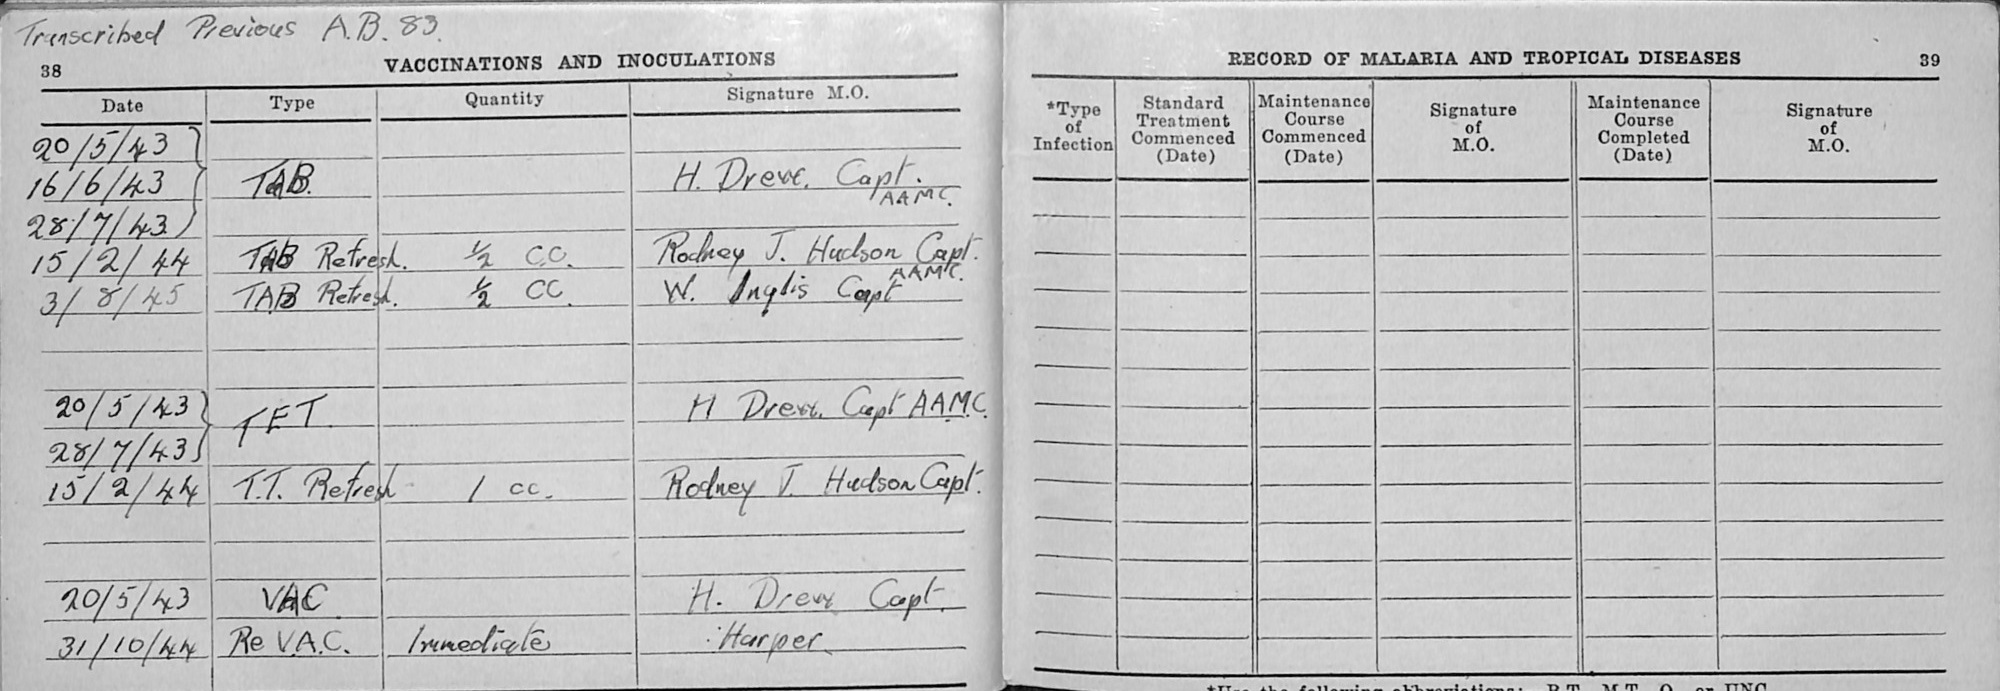 Transcribed Previous A.B. 83.
38 VACCINATIONS AND INOCULATIONS
Date Type Quantity Signature M.O.
20/5/43
16/6/43 TAB. H. Drew. Capt.
AAMC.
28/7/43
15/2/44 TAB Refresh. ½ CC. Rodney J. Hudson Capt.
AAMC.
3/8/45 TAB Refresh. ½ CC. W. Inglis Capt
20/5/43 TET. H Drew. Capt AAMC.
28/7/43
15/2/44 T.T. Refresh 1 cc. Rodney J. Hudson Capt.
20/5/43 VAC H. Drew Capt.
31/10/44 Re V.A.C. Immediate Harper.
RECORD OF MALARIA AND TROPICAL DISEASES 39
*Type of Infection
Standard Treatment Commenced (Date)
Maintenance Course Commenced (Date)
Signature of M.O.
Maintenance Course Completed (Date)
Signature of M.O.
*Use the following abbreviations: B.T., M.T., Q. or UNC.